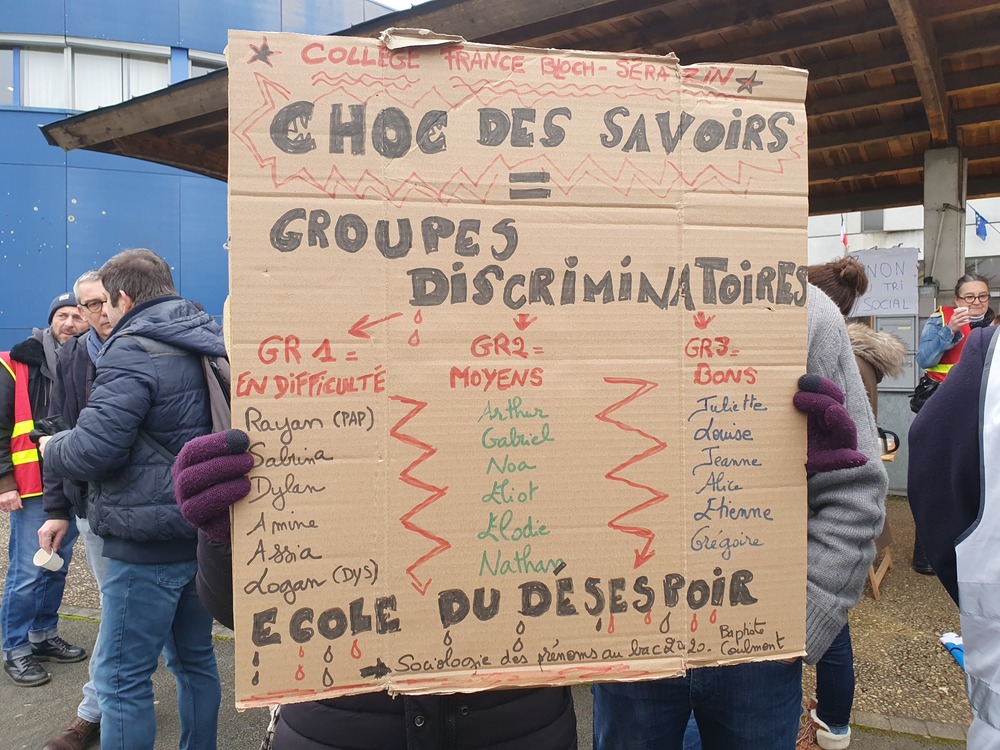 COLLEGE FRANCE BLOCH-SÉRAZIN
CHOC DES SAVOIRS
=
GROUPES
DISCRIMINATOIRES
GR 1 =
EN DIFFICULTÉ
Rayan (PAP)
Sabrina
Dylan
Amine
Assia
Logan (DYS)
GR2=
MOYENS
Arthur
Gabriel
Noa
Eliot
Elodie
Nathan
GR3=
BONS
Juliette
Louise
Jeanne
Alice
Etienne
Grégoire
ECOLE DU DÉSESPOIR
Sociologie des prénoms au bac 2020. Baptiste
Coulmont
NON
TRI
SOCIAL